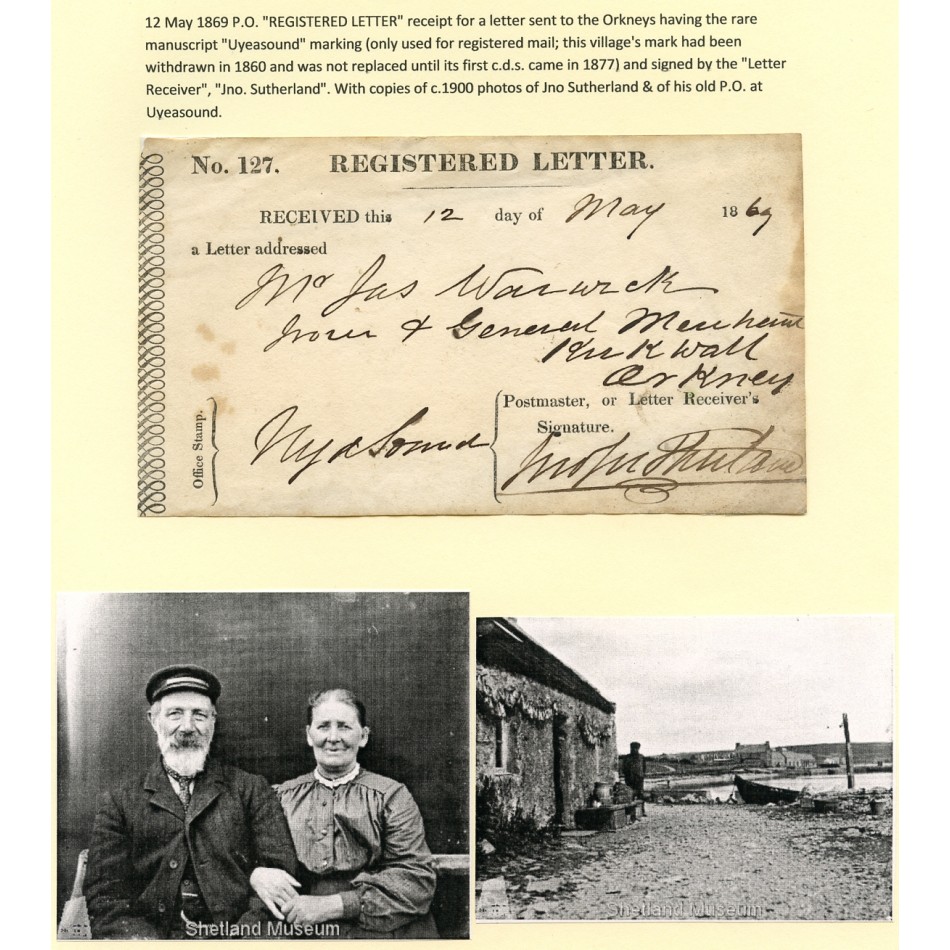 12 May 1869 P.O. "REGISTERED LETTER" receipt for a letter sent to the Orkneys having the rare
manuscript "Uyeasound" marking (only used for registered mail; this village's mark had been
withdrawn in 1860 and was not replaced until its first c.d.s. came in 1877) and signed by the "Letter
Receiver", "Jno. Sutherland". With copies of c.1900 photos of Jno Sutherland & of his old P.O. at
Uyeasound.
No. 127. REGISTERED LETTER.
RECEIVED this 12 day of May 1869
a Letter addressed
Mr Jas Warwick
& General Merchant
Kirkwall
Orkney
Postmaster, or Letter Receiver's
Signature.
Office Stamp.
Shetland Museum
Shetland Museum